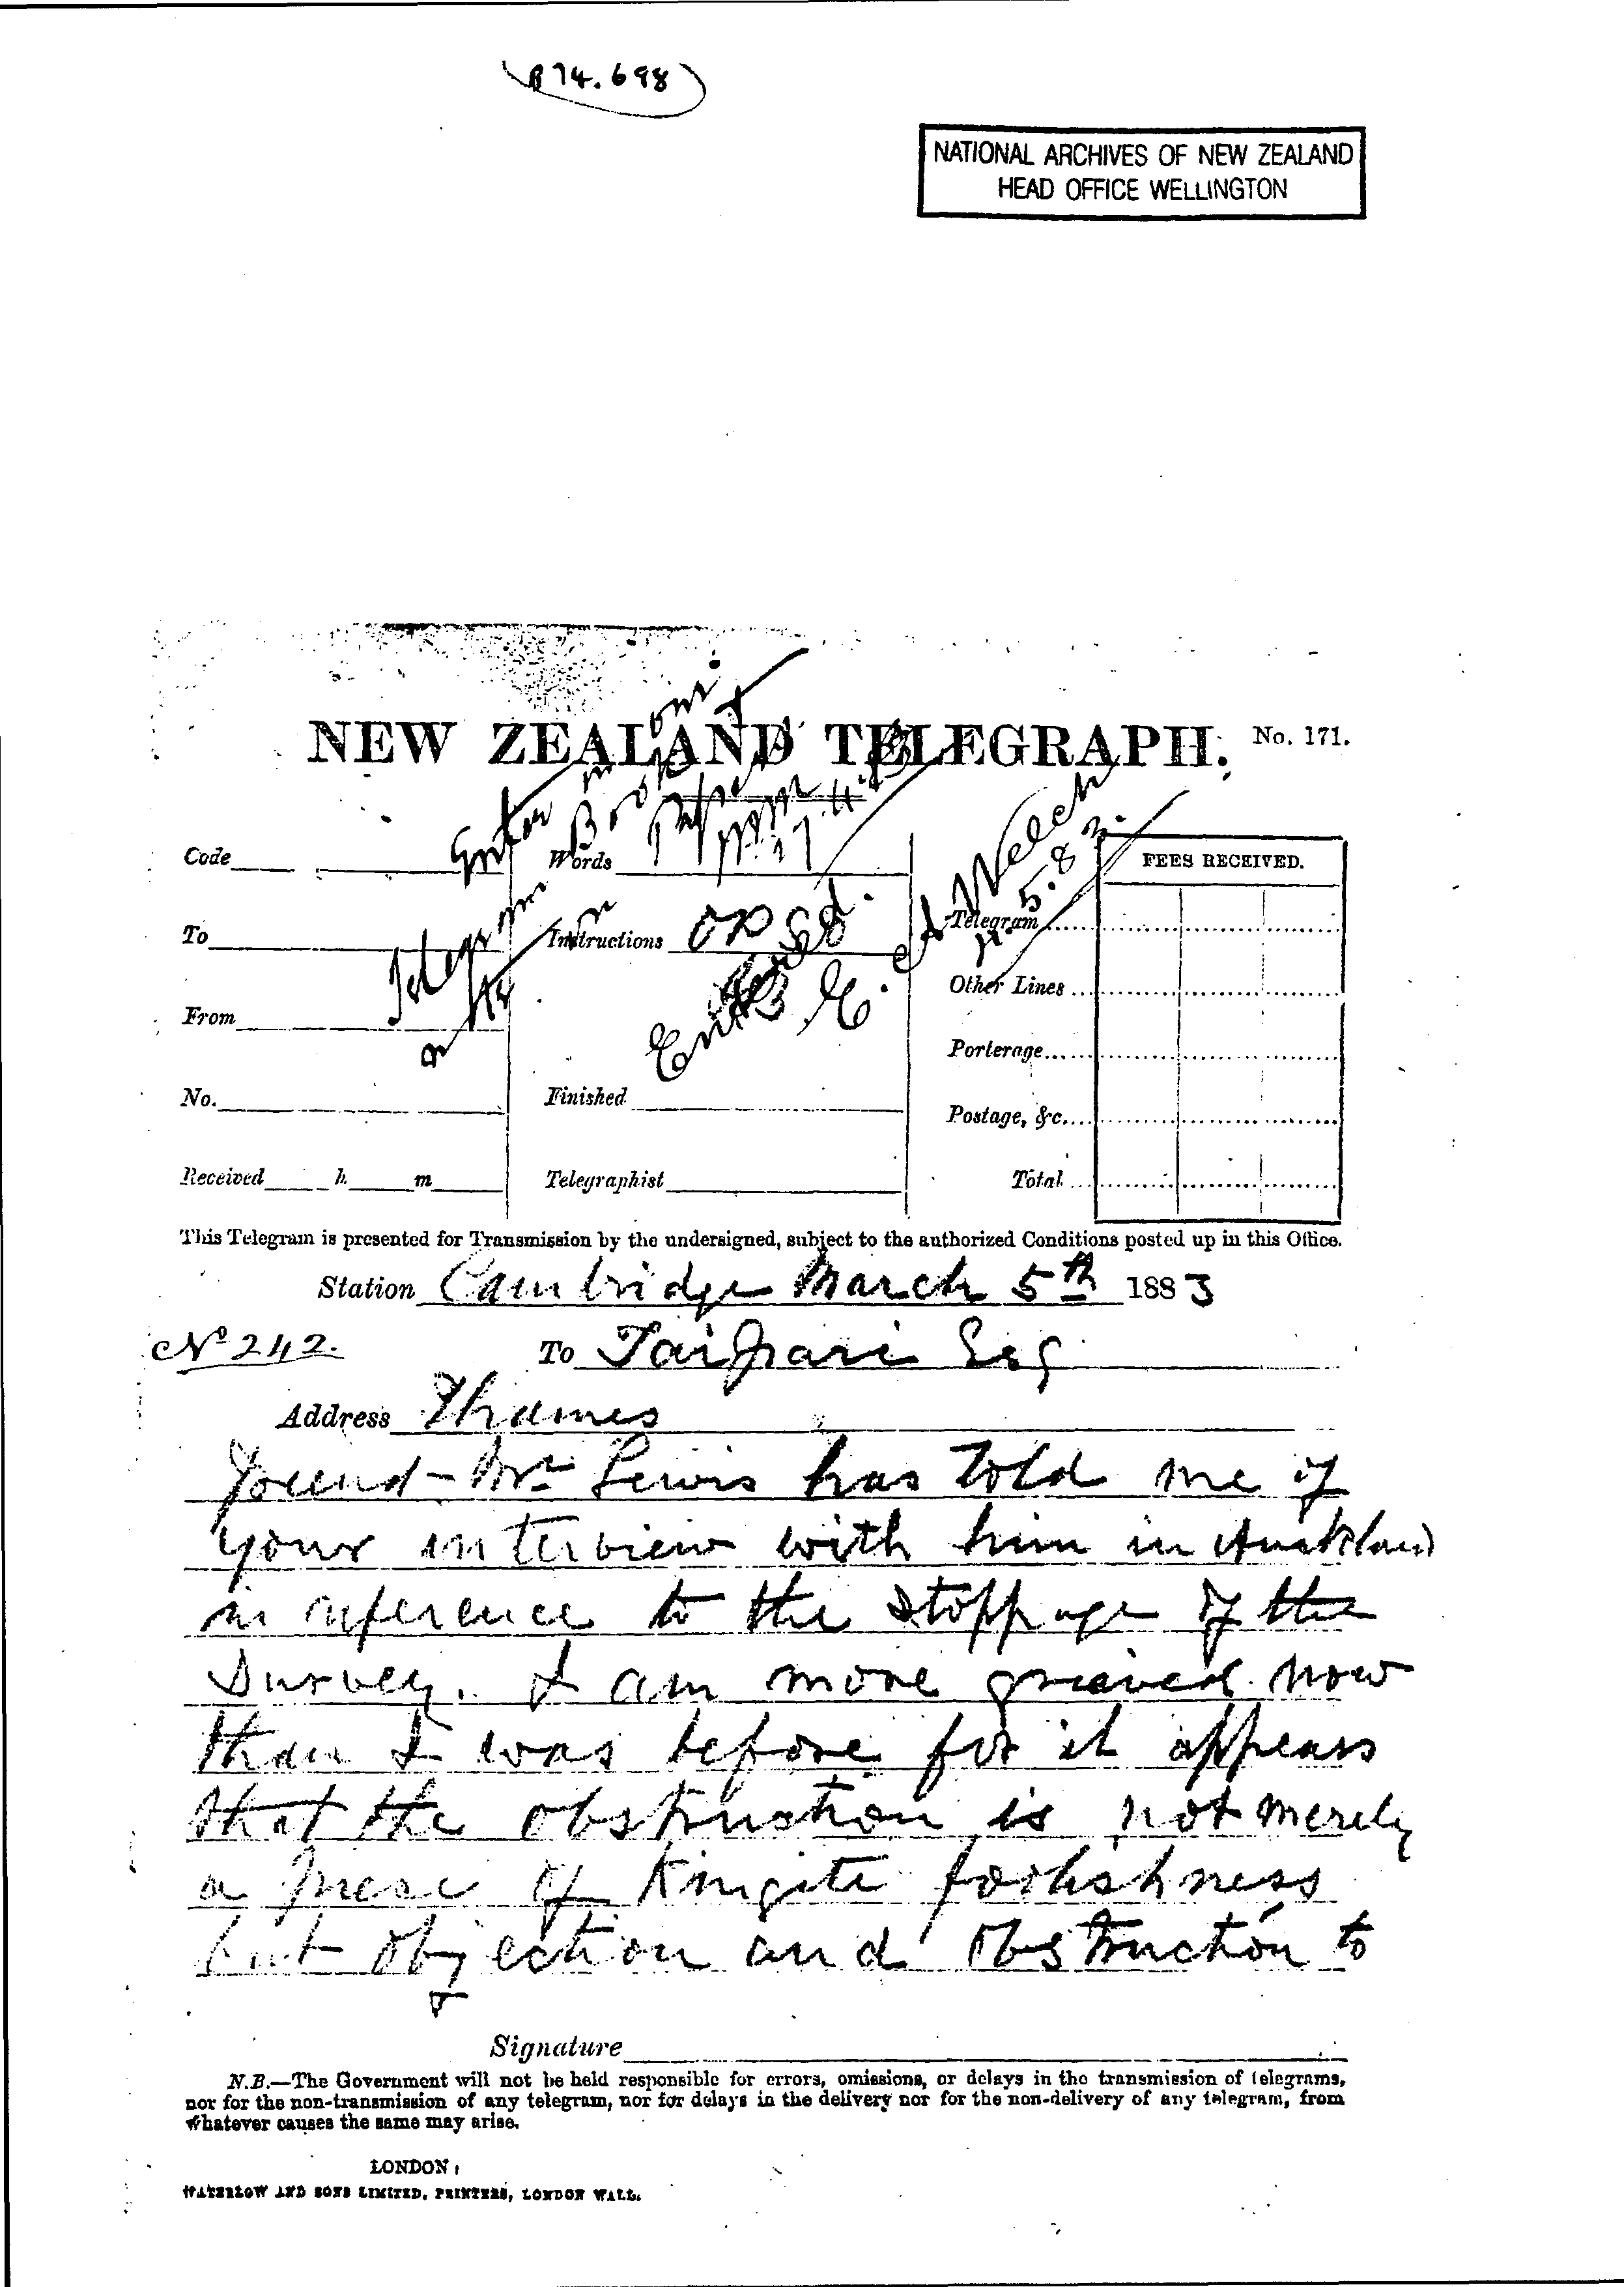 (B 74.698)
NATIONAL ARCHIVES OF NEW ZEALAND
HEAD OFFICE WELLINGTON
NEW ZEALAND TELEGRAPH. No. 171.
Enter in
Telegram
J Welch
5.3.83
Code Words FEES RECEIVED.
To Instructions Telegram
Other Lines
From
Porterage
No. Finished
Postage, &c.
Received h. m Telegraphist Total
This Telegram is presented for Transmission by the undersigned, subject to the authorized Conditions posted up in this Office.
Station Cambridge March 5th 1883
No 242. To Taipari Esq
Address Thames
Friend - Mr Lewis has told me of
your interview with him in Auckland
in reference to the stoppage of the
Survey. I am more grieved now
than I was before for it appears
that the obstruction is not merely
a piece of Kingite foolishness
but objection and obstruction to
Signature
N.B.—The Government will not be held responsible for errors, omissions, or delays in the transmission of telegrams,
nor for the non-transmission of any telegram, nor for delays in the delivery nor for the non-delivery of any telegram, from
whatever causes the same may arise.
LONDON:
WATERLOW AND SONS LIMITED, PRINTERS, LONDON WALL.